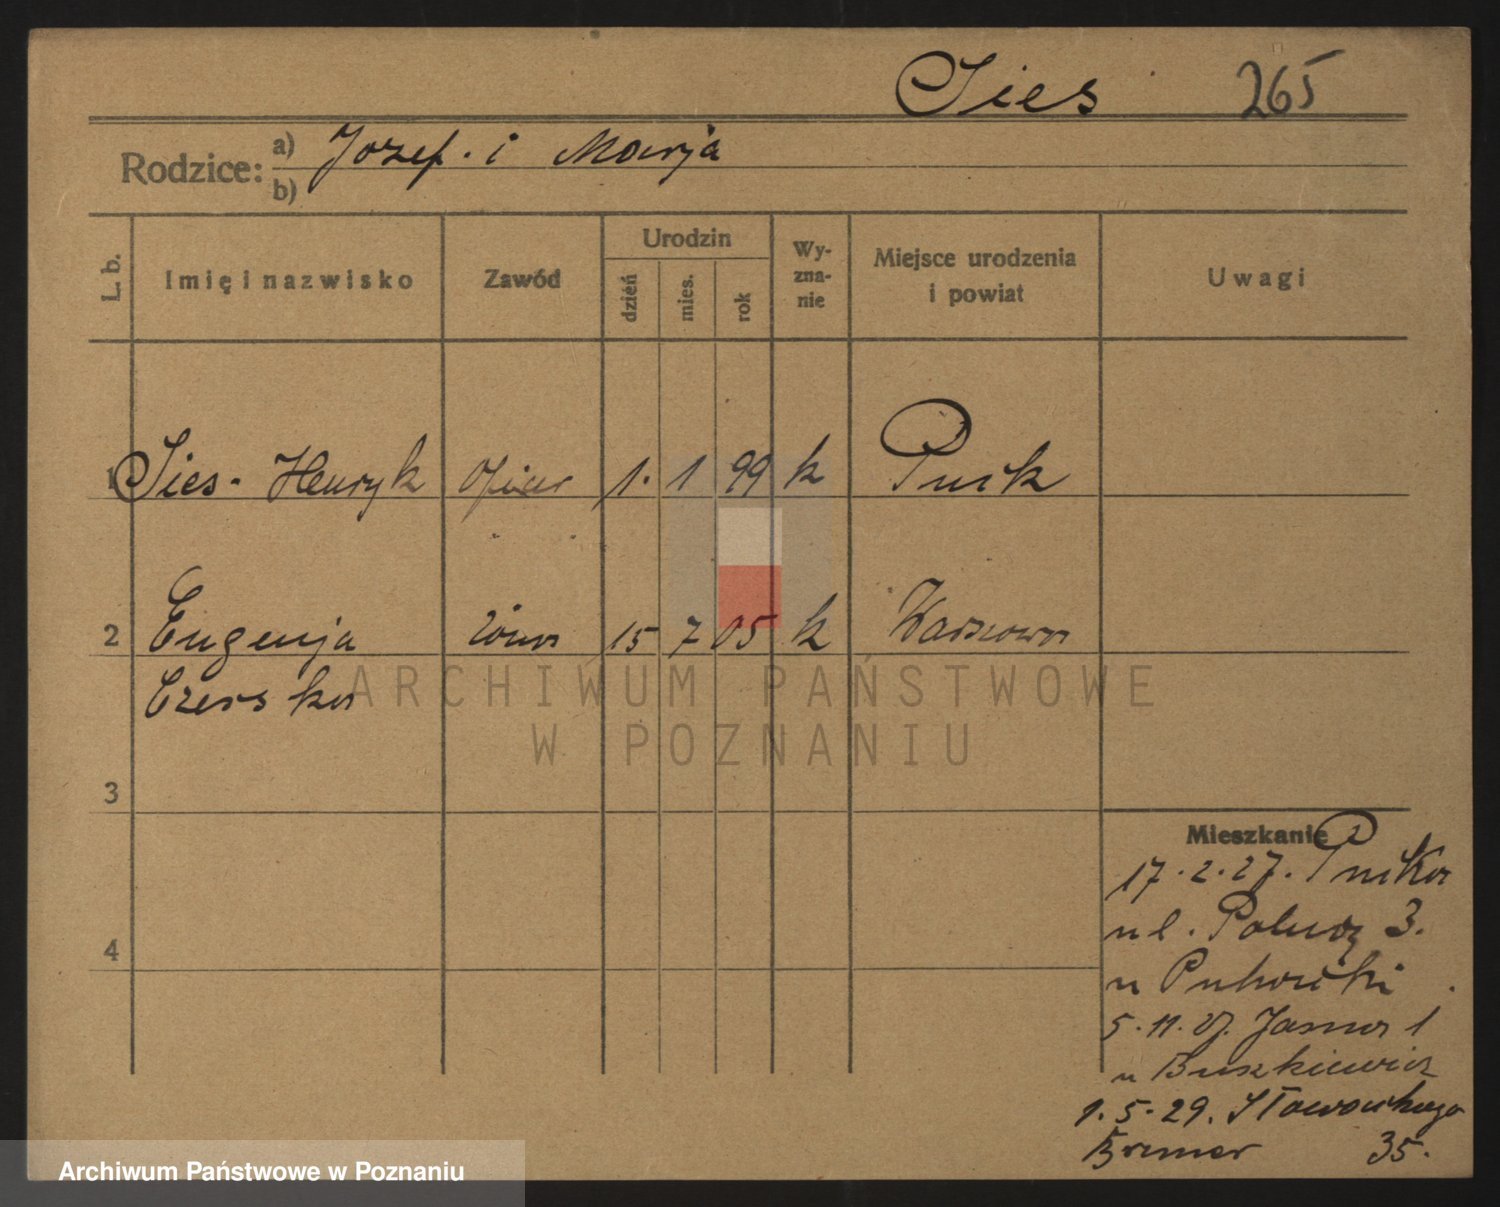 Sies 265
Rodzice: a) Jozef. i Marja
b)
L. b. Imię i nazwisko Zawód Urodzin dzień mies. rok Wy-zna-nie Miejsce urodzenia i powiat Uwagi
1 Sies - Henryk Oficer 1. 1 99 k Puck
2 Eugenja żona 15 7 05 k Warszawa
Czerska
3
4
Mieszkanie
17.2.27. Pucka
ul. 3.
u
5.11.27. Jasna 1
u Buszkiewicz
1.5.29. Słowackiego
Bremer 35.
ARCHIWUM PAŃSTWOWE
W POZNANIU
Archiwum Państwowe w Poznaniu